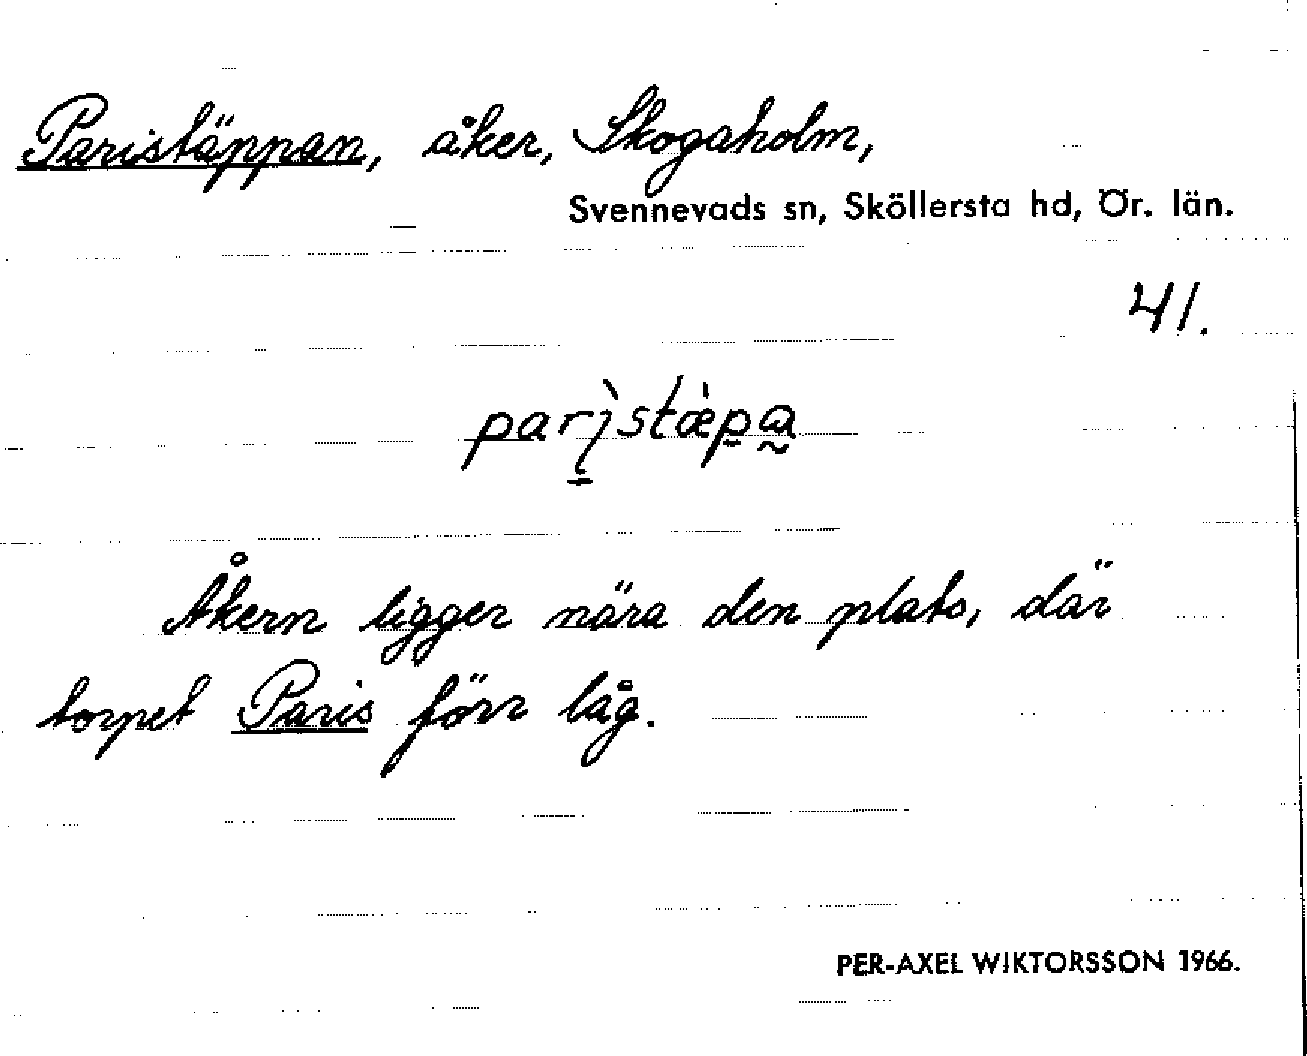 Paristäppan, åker, Skogaholm,
Svennevads sn, Sköllersta hd, Ör. län.
41.
Åkern ligger nära den plats, där
torpet Paris förr låg.
PER-AXEL WIKTORSSON 1966.